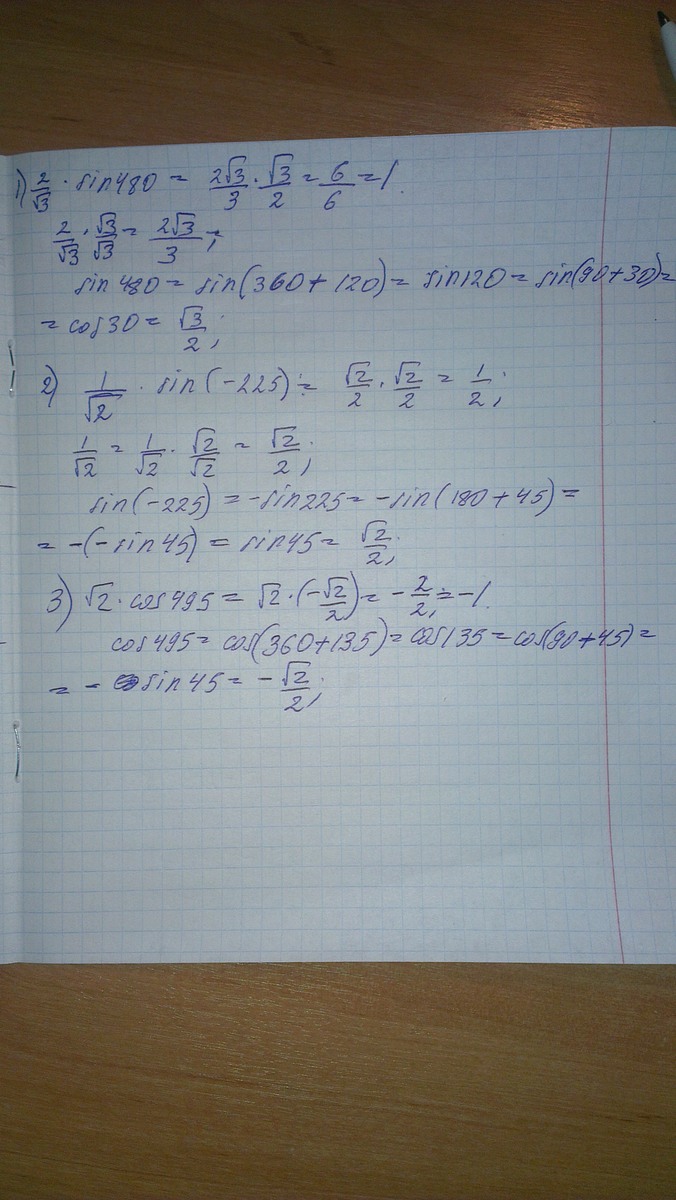 1) 2/√3 · sin 480 = 2√3/3 · √3/2 = 6/6 = 1.
2/√3 · √3/√3 = 2√3/3;
sin 480 = sin(360 + 120) = sin 120 = sin(90 + 30) =
= cos 30 = √3/2;
2) 1/√2 · sin(-225) = √2/2 · √2/2 = 1/2;
1/√2 = 1/√2 · √2/√2 = √2/2;
sin(-225) = -sin 225 = -sin(180 + 45) =
= -(-sin 45) = sin 45 = √2/2;
3) √2 · cos 495 = √2 · (-√2/2) = -2/2 = -1.
cos 495 = cos(360 + 135) = cos 135 = cos(90 + 45) =
= - sin 45 = -√2/2;